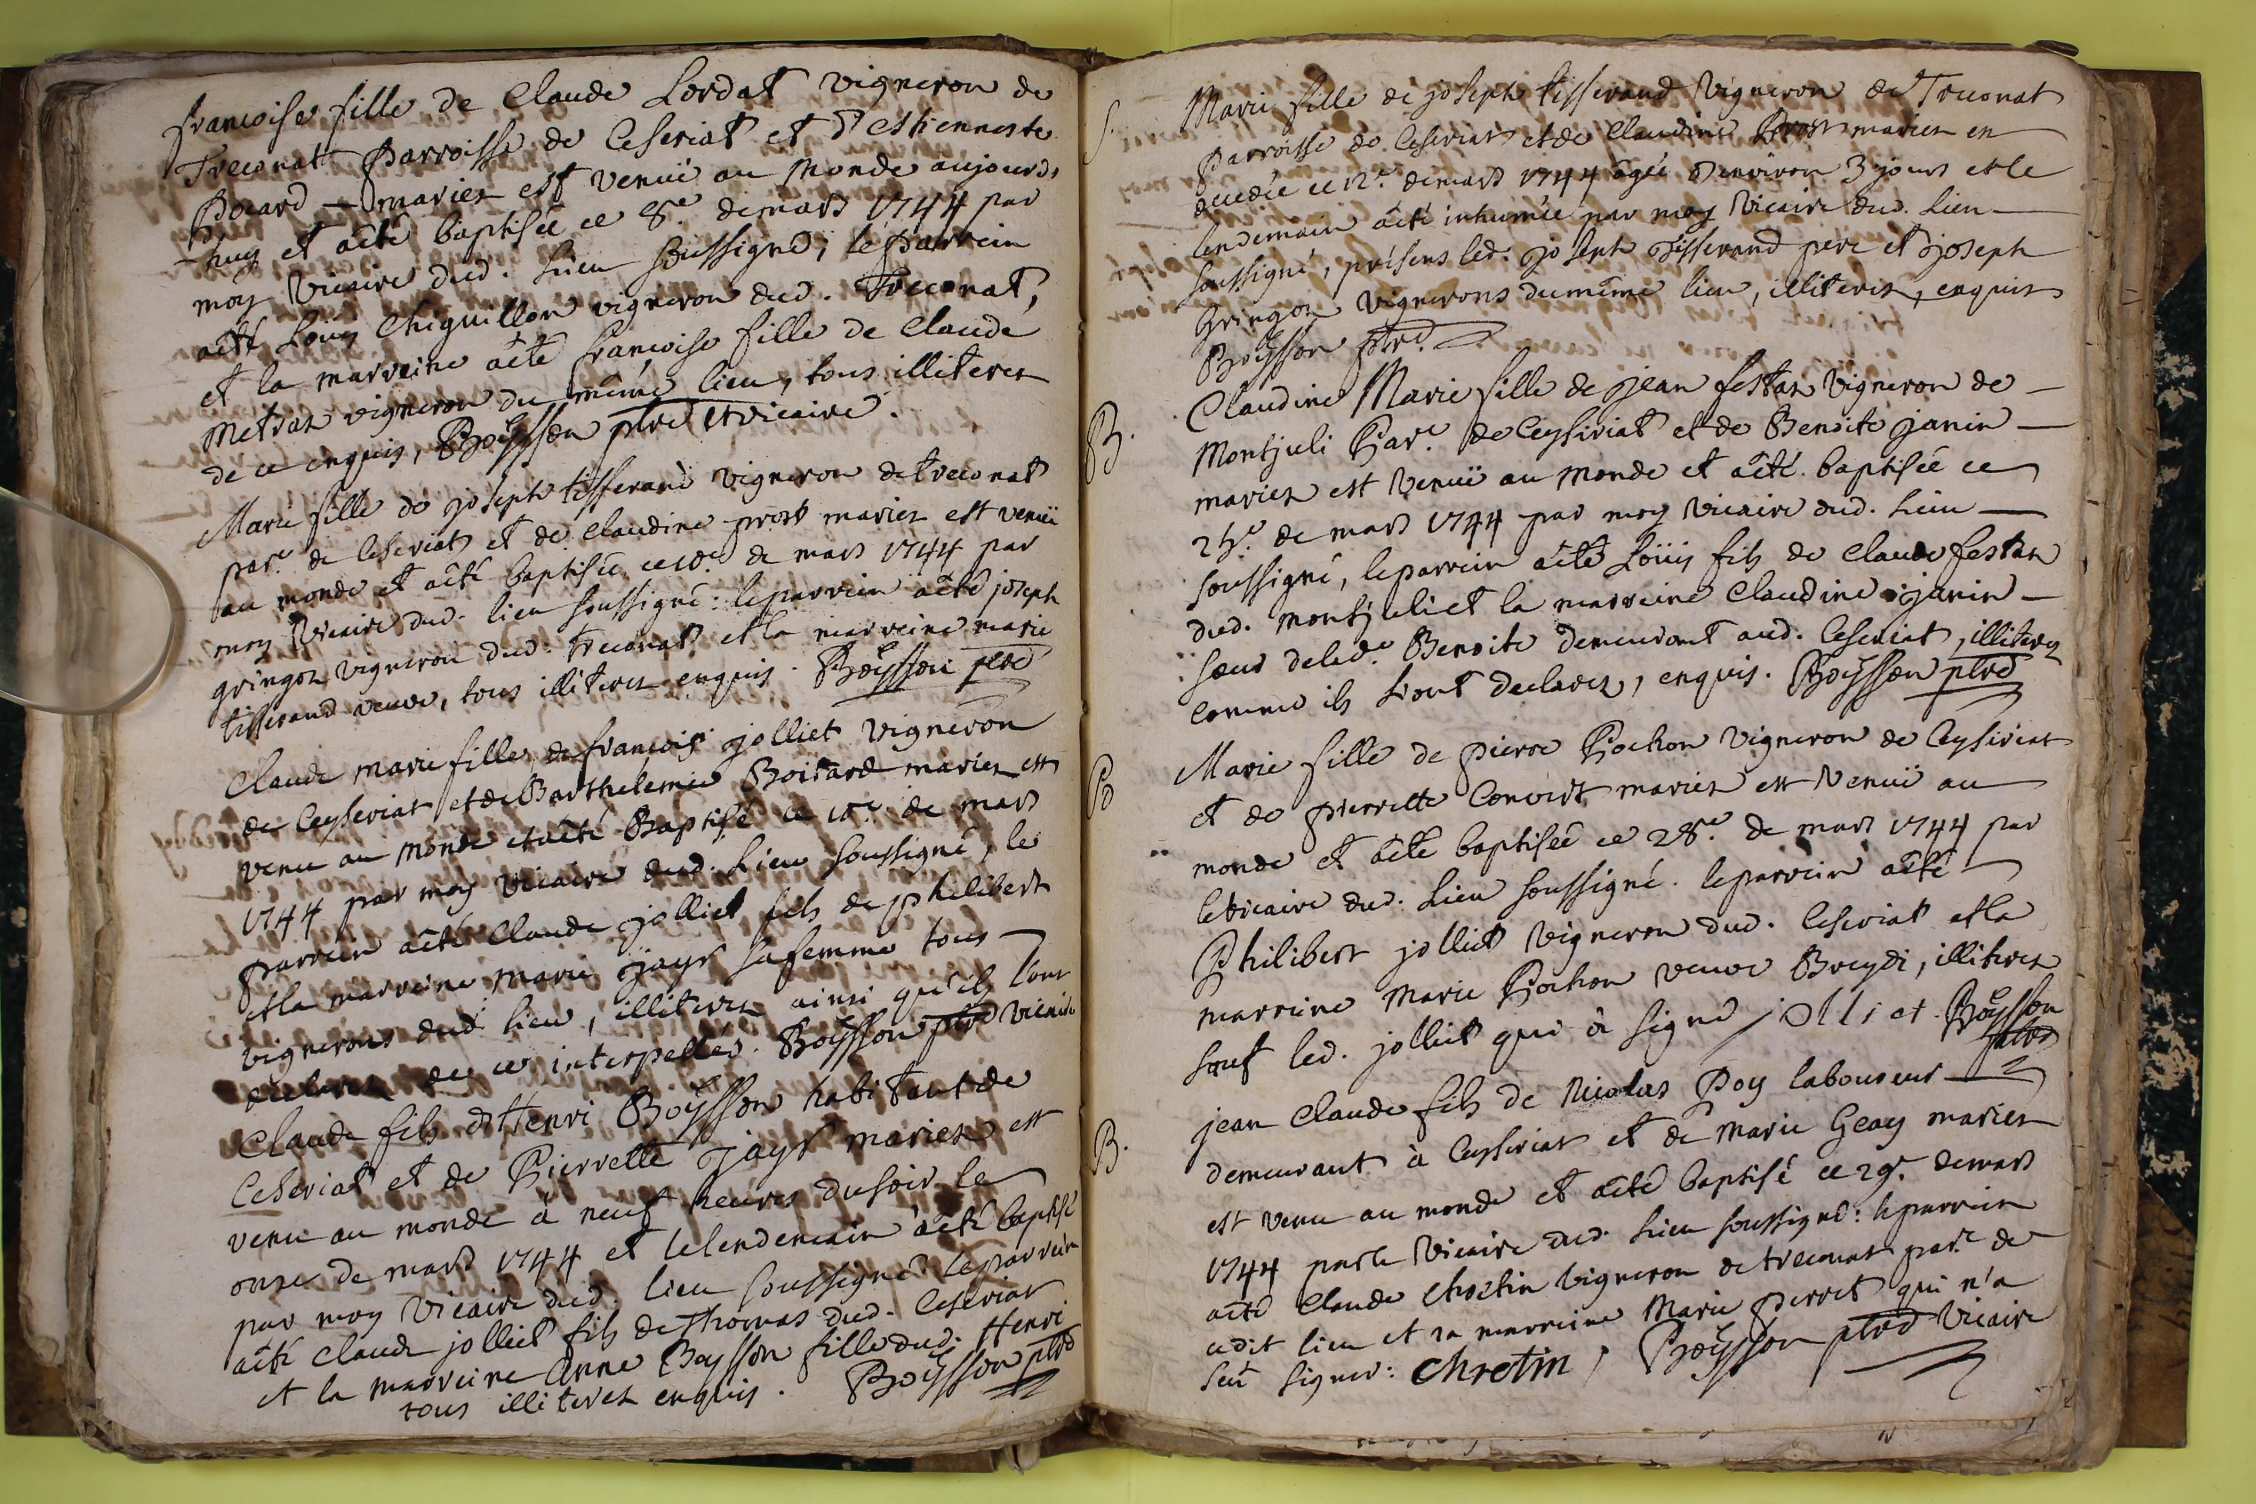 francoise fille de Claude Lordat vigneron de
Treconat Parroisse de Ceseriat et d'estiennette
Pocard mariez est venuë au monde aujourd,
-huy et aété baptisée ce 8e. de mars 1744 par
moy vicaire dud. lieu soussigné, le parrein
aété Loüis Chiguillon vigneron dud. Treconat,
et la marreine aété françoise fille de Claude
metraz vigneron du même lieu, tous illiterez
de ce enquis, Boÿsson ptre et vicaire.
Marie fille de joseph tisserand vigneron de treconat
par.e de Ceseriat et de Claudine prost mariez est venuë
au monde et aété baptisée ce 10e de mars 1744 par
moy vicaire dud. lieu soussigné : le parrein aété joseph
gringoz vigneron dud. treconat et la marreine marie
tisserand veuve, tous illiterez enquis. Boÿsson ptre
Claude marie fille de françois jolliet vigneron
de Ceyseriat et de Barthelemie Boitard mariez est
venu au monde et aété Baptisé ce 10e. de mars
1744 par moy vicaire dud. lieu soussigné, le
parrein aété Claude jolliet fils de philibert
et la marreine marie jayr sa femme tous
vignerons dud. lieu, illiterez ainsi qu'ils l'ont
declarez de ce interpellés. Boÿsson ptre vicaire
Claude fils d'Henri Boÿsson habitant de
Ceseriat et de Pierrette Jayr mariez est
venu au monde à neuf heures du soir le
onze de mars 1744 et le lendemain aété baptisé
par moy vicaire dud. lieu soussigné le parrein
aété claude jolliet fils de Thomas dud. Ceseriat
et la marreine Anne Boysson fille dud. Henri
tous illiterez enquis. Boÿsson ptre
S. Marie fille de joseph tisserand vigneron de Treconat
parroisse de Ceseriat et de Claudine Prost mariez en
decedée ce 12e. de mars 1744 âgée d'environ 3 jours et le
lendemain aété inhumée par moy vicaire dud. lieu
soussigné, présens led. joseph Tisserand pere et joseph
Gringoz vignerons du même lieu, illiterez, enquis
Boÿsson ptre.
B. Claudine Marie fille de jean festaz vigneron de
Montjuli Par.e de Ceysiriat et de Benoite janin
mariez est venuë au monde et aété baptisée ce
25e. de mars 1744 par moy vicaire dud. lieu
soussigné, le parrein aété Loüis fils de Claude festaz
dud. montjuli et la marreine Claudine janin
sœur de lade. Benoite demeurant aud. Ceseriat, illiterez
comme ils l'ont declarez, enquis. Boÿsson ptre
B Marie fille de pierre Pochon vigneron de Ceyseriat
et de pierrette Convert mariez est venuë au
monde et aété baptisée ce 28e. de mars 1744 par
le vicaire dud. lieu soussigné. le parrein aété
Philibert jolliet vigneron dud. Ceseriat et la
marreine Marie Pochon veuve Breydi, illiterez
sauf led. jolliet qui à signé jolliet Boÿsson
ptre
B. jean Claude fils de Nicolas Poy laboureur
demeurant à Ceyseriat et de marie Geay mariez
est venu au monde et aété baptisé ce 29e. de mars
1744 par le vicaire dud. lieu soussigné : le parrein
aété Claude Chretin vigneron de treconat par.e de
cedit lieu et la marreine Marie perret qui n'a
seu signer : chretin, Boÿsson ptre vicaire